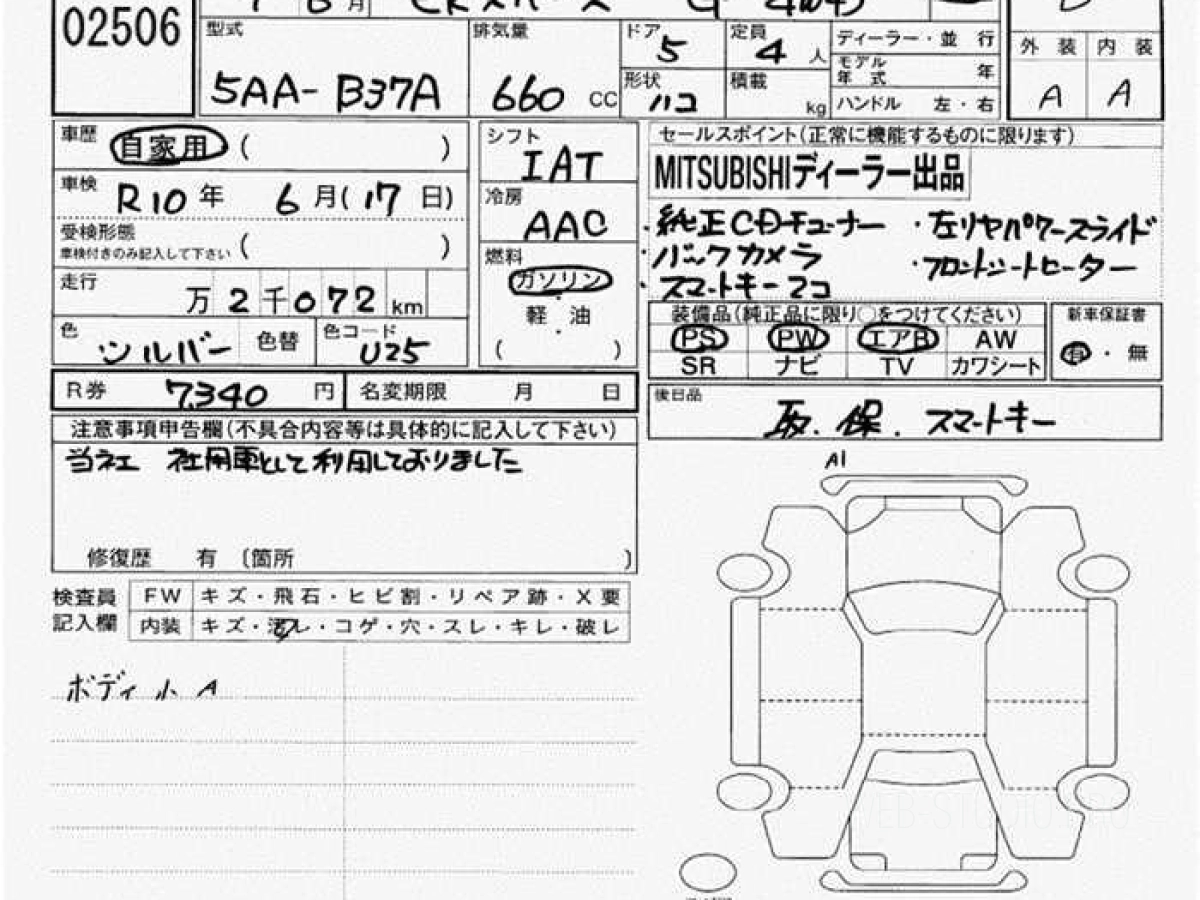 02506
6月 eKスペース G 4WD
型式 5AA-B37A
排気量 660 cc
ドア 5
定員 4 人
形状 ハコ
積載 kg
ディーラー・並 行
モデル年式 年
ハンドル 左・右
外 装 内 装
A A
車歴 自家用 ( )
車検 R10年 6月(17日)
受検形態
車検付きのみ記入して下さい ( )
走行 万2千072km
色 シルバー 色替 色コード U25
シフト IAT
冷房 AAC
燃料 ガソリン
・
軽 油
・
( )
セールスポイント(正常に機能するものに限ります)
MITSUBISHIディーラー出品
・純正CDチューナー ・左リヤパワースライド
・バックカメラ ・フロントシートヒーター
・スマートキー2コ
装備品(純正品に限り○をつけてください)
PS PW エアB AW
SR ナビ TV カワシート
新車保証書
有・無
R券 7,340 円 名変期限 月 日
後日品 取.保.スマートキー
注意事項申告欄(不具合内容等は具体的に記入して下さい)
当社 社用車として利用しておりました
修復歴 有 〔箇所 〕
検査員記入欄
FW キズ・飛石・ヒビ割・リペア跡・X要
内装 キズ・汚レ・コゲ・穴・スレ・キレ・破レ
ボディ小A
A1